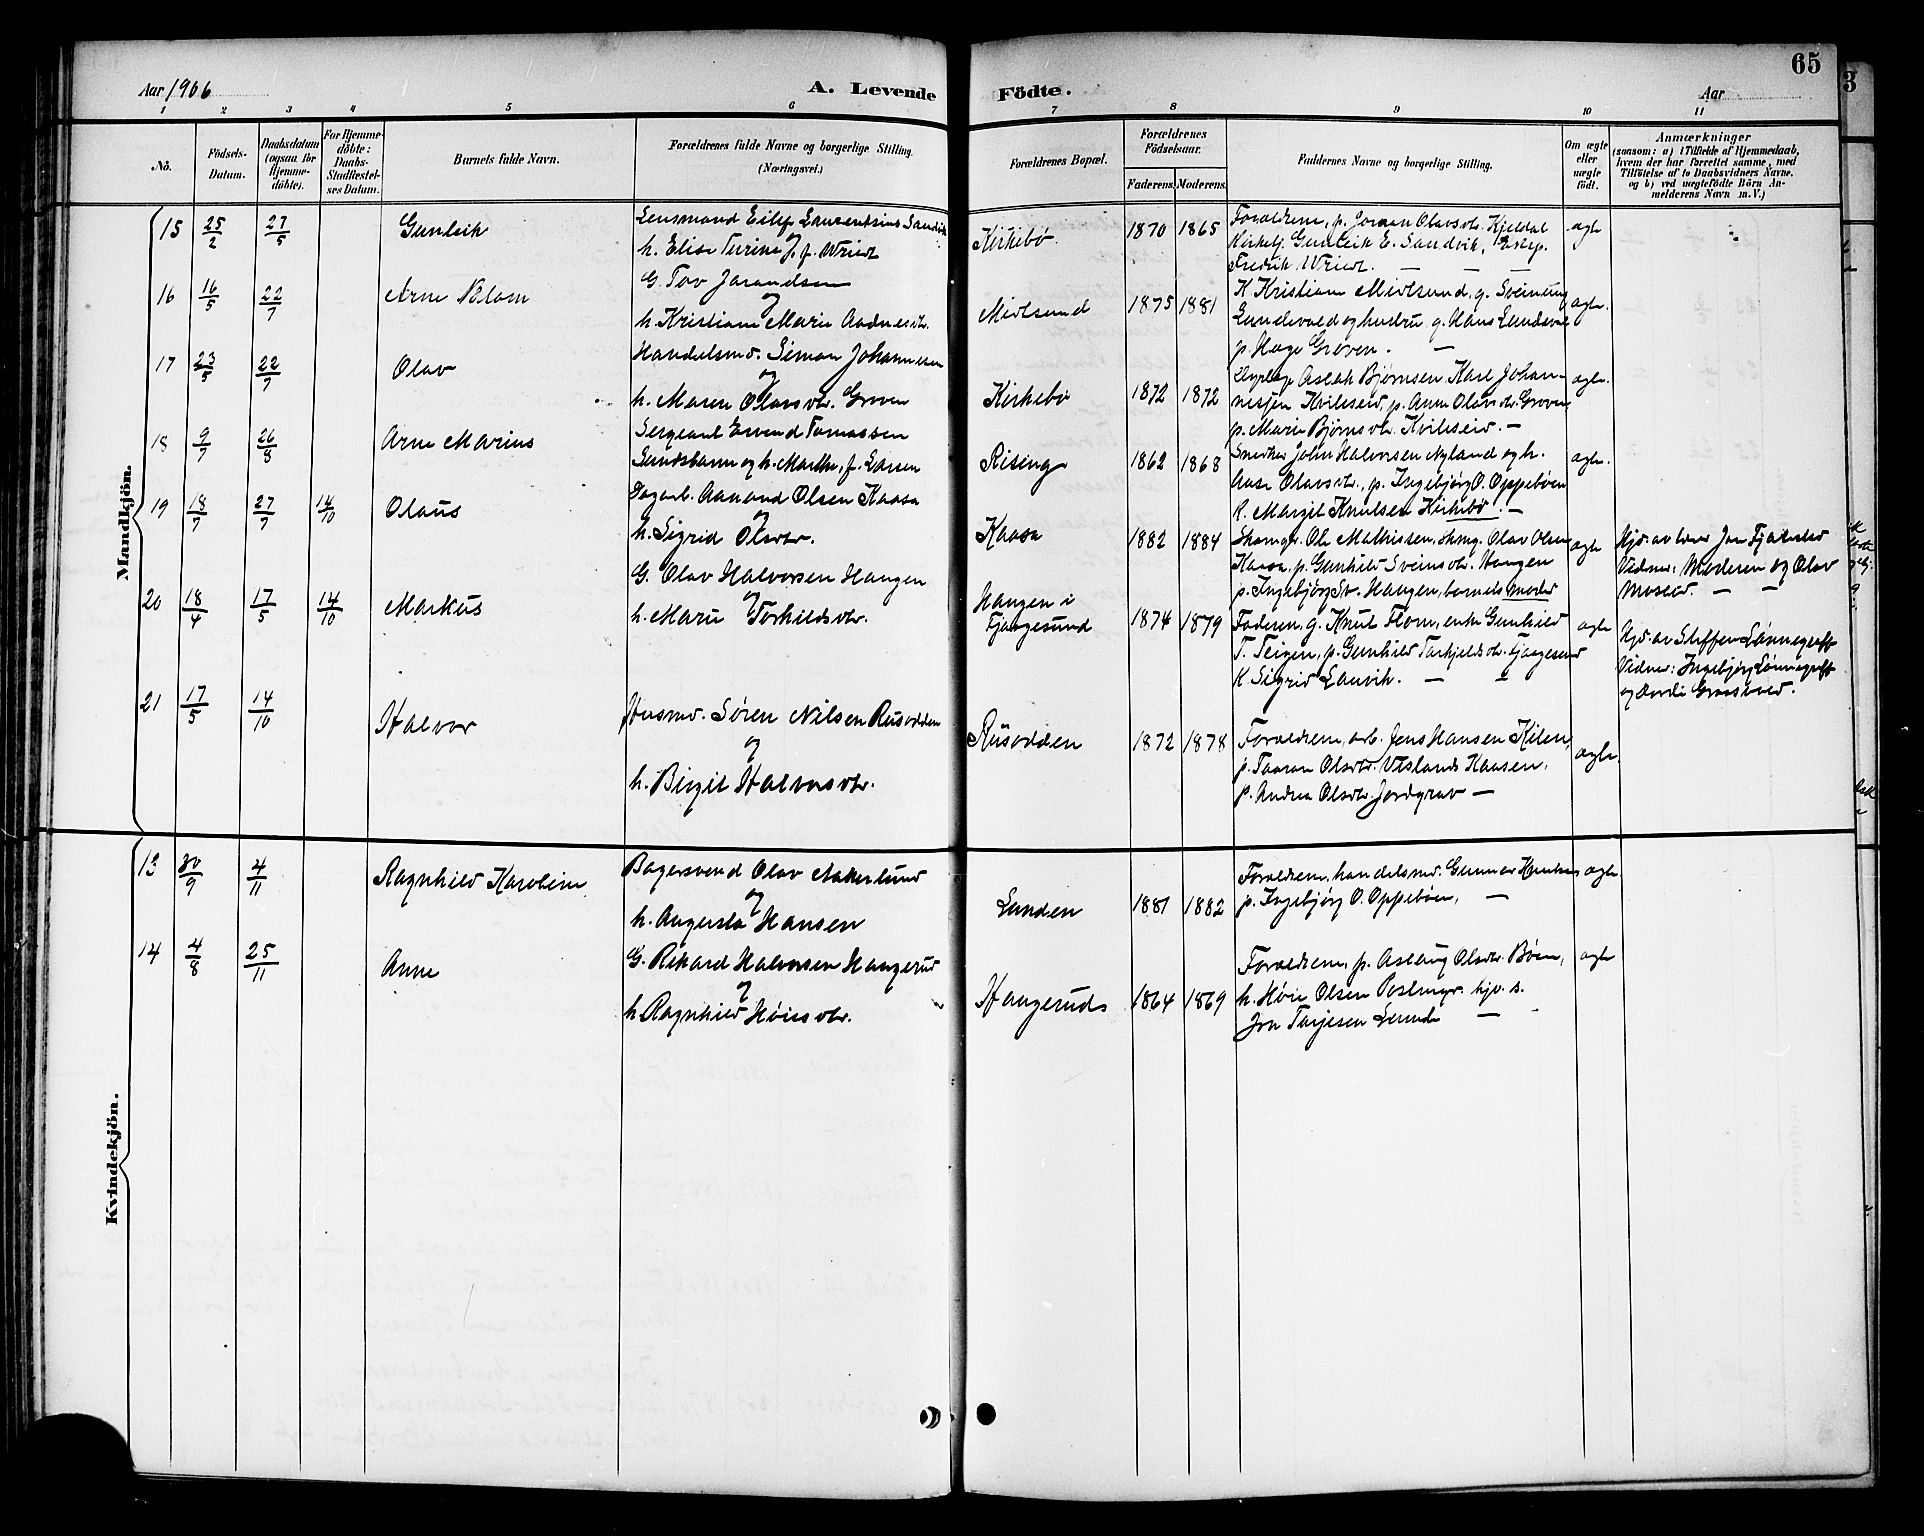 Aar 1906
A. Levende
Födte.
Aar
65
1 2 3 4 5 6 7 8 9 10 11
No.
Födsels-Datum.
Daabsdatum (ogsaa for Hjemmedöbte).
For Hjemmedöbte: Daabs-Stadfæstelses Datum.
Barnets fulde Navn.
Forældrenes fulde Navne og borgerlige Stilling.
(Næringsvei.)
Forældrenes Bopæl.
Forældrenes Födselsaar.
Faderens. Moderens.
Faddernes Navne og borgerlige Stilling.
Om ægte eller uægte födt.
Anmærkninger
(saasom: a) i Tilfælde af Hjemmedaab, hvem der har forrettet samme, med Tilföielse af to Daabsvidners Navne. og b) ved uægtefödte Börn Anmelderens Navn m. V.)
Mandkjön.
15 25/2 27/5 Gunleik
Lensmand Eilef Laurentsius Sandvik
og
h. Elise Turine J. f. Wriedt
Kirkebø 1870 1865
Forældrene, p. Joraan Olavsdtr. Kjeldal
Kirkesj. Gunleik E. Sandvik,
Fredrik Wriedt. — — —
ægte
16 16/5 22/7 Arne Blom
G. Tov Jarandsen
og
h. Kristiane Marie Aadnesdtr.
Midtsund 1875 1881
K Kristiane Midtsund, g. Sveinung
Lundevald og hustru g. Hans Lundevald
p. Hæge Groven. —
ægte.
17 23/5 22/7 Olav
Handelsmd. Simon Johannesen
og
h. Maren Olavsdtr. Groven
Kirkebø 1872 1872
Dyrlæge Aslak Bjørnsen, Karl Johannesjen Kviteseid, p. Anne Olavsdtr. Groven
p. Marie Bjørnsdtr. Kviteseid. —
ægte.
18 9/7 26/8 Arne Marius
Sergeant Eivend Tomassen
Sundsbarm og h. Marthe, f. Larsen
Rising 1862 1868
Snedker John Halvorsen Nyland og h.
Aase Olavsdtr., p. Ingebjørg O. Oppebøen
K. Margit Knutsen Kirkebø. —
ægte.
19 18/7 27/7 14/10 Olaus
Dagarb. Aanond Olsen Kaasa
og
h. Sigrid Olsdtr.
Kaasa 1882 1884
Skomgr. Ole Mathissen, skmg. Olav Olsen
Kaasa, p. Gunhild Sveinsdtr. Haugen
p. Ingebjørg Sv. Haugen, barnets moder
ægte
Hjd. av lærer Jon Fjalestad
Vidner: Moderen og Olav
Moseid. — —
20 18/4 17/5 14/10 Markus
G. Olav Halvorsen Haugen
og
h. Marie Torkildsdtr.
Haugen i Fjaagesund 1874 1879
Faderen, g. Knut Flom, enke Gunhild
T. Teigen, p. Gunhild Torkjeldsdtr. Fjaagesund
K Sigrid Lauvik. — —
ægte
Hjd. av Steffen Lønnegraff
Vidner: Ingebjørg Lønnegraff
og
21 17/5 14/10 Halvor
Husmd. Søren Nilsen Rusodden
og
h. Birgit Halvorsdtr.
Rusodden 1872 1878
Forældrene, arb. Jens Hansen Kilen,
p. Taaran Olsdtr. Veslands Kaasen,
p. Andrea Olsdtr. Jordgrav —
ægte.
Kvindekjön.
13 30/9 4/11 Ragnhild Karoline
Bagersvend Olav Aakerlund
og
h. Augusta Hansen
Lunden 1881 1882
Forældrene, handelsmd. Gunnar Knutsen
p. Ingebjørg O. Oppebøen, —
ægte.
14 4/8 25/11 Anne
G. Rikard Halvorsen Haugerud
og
h. Ragnhild Høiesdtr.
Haugeruds 1864 1869
Forældrene, p. Aslaug Olsdtr. Bøen,
h. Høie Olsen Postmyr. hjv. s.
Jon Tarjesen Lunde —
ægte
3